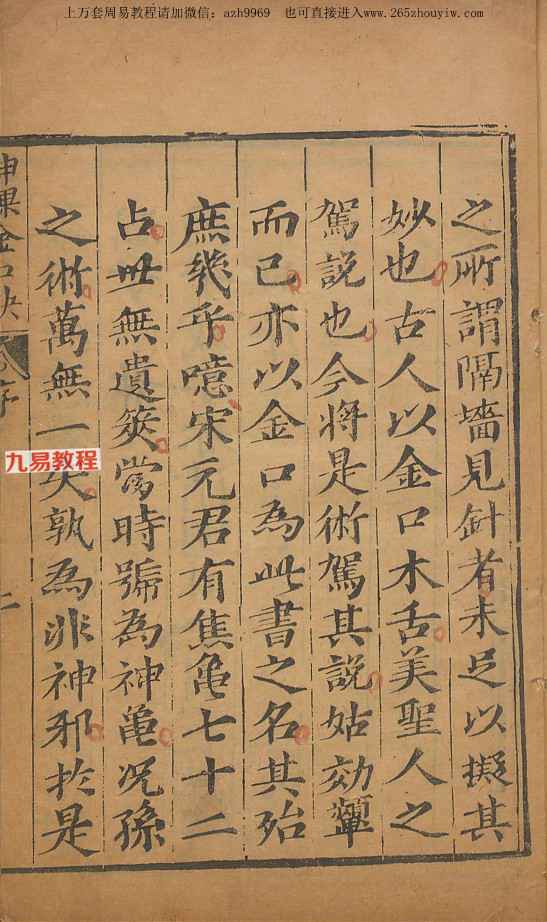 上万套周易教程请加微信：azh9969 也可直接进入www.265zhouyiw.com
之所謂隔墻見針者未足以擬其
妙也古人以金口木舌美聖人之
駕說也今將是術駕其說姑効顰
而已亦以金口為此書之名其殆
庶幾乎噫宋元君有焦龜七十二
占毋無遺筴當時號為神龜况孫
之術萬無一失孰為非神邪於是
神課金口訣
序
二
九易教程